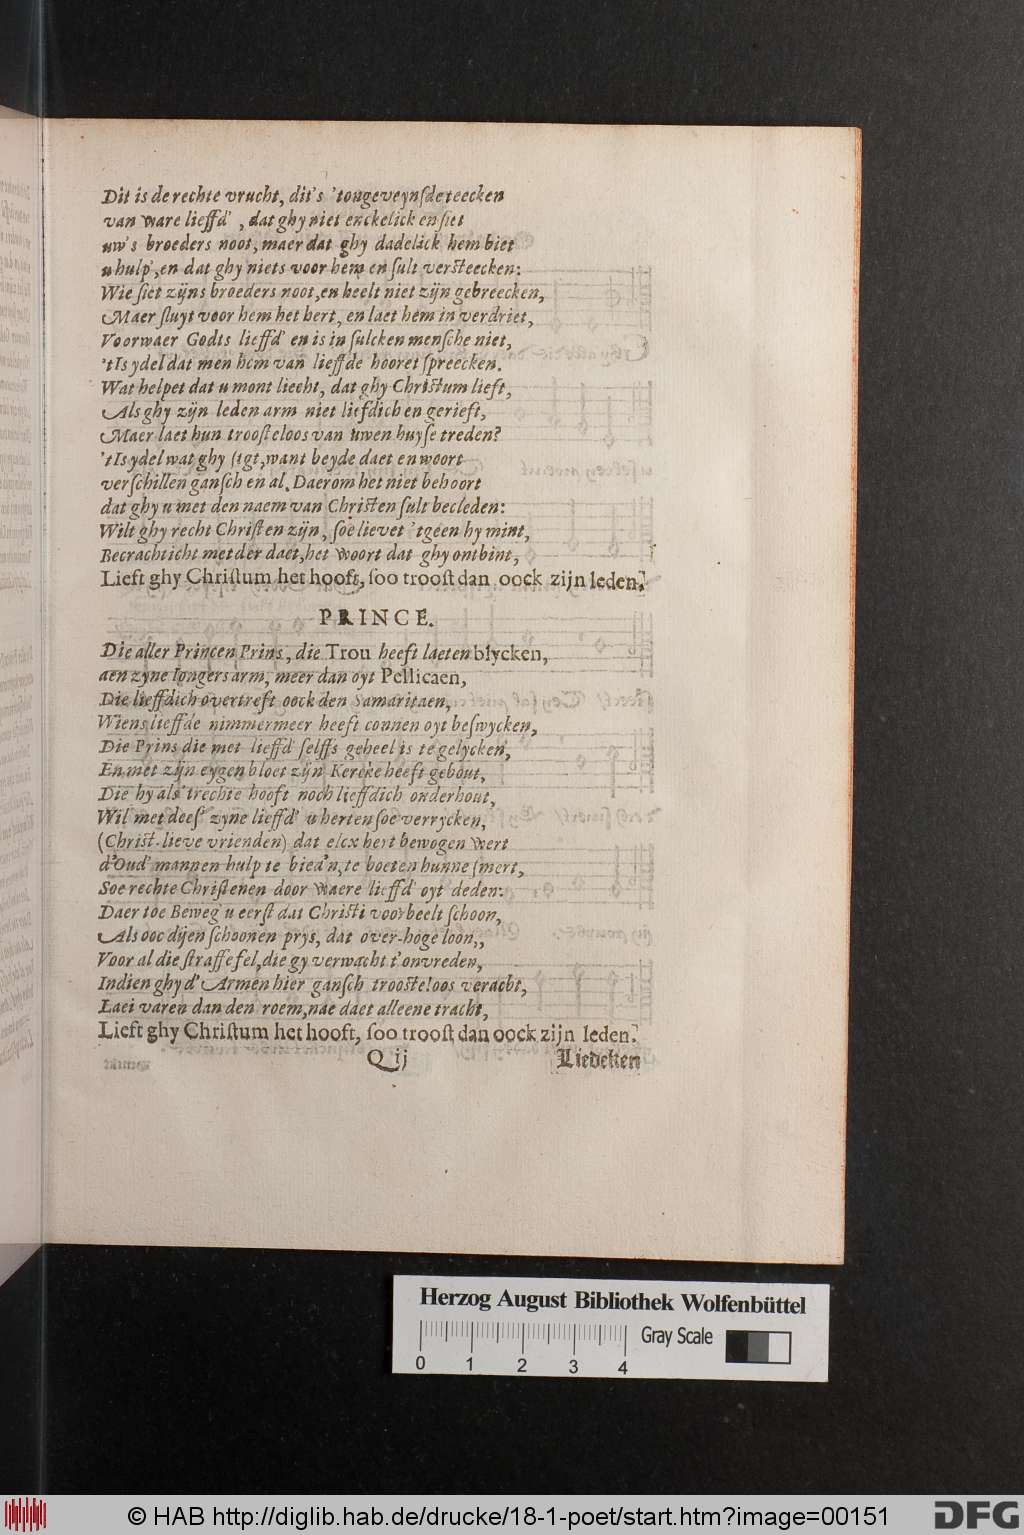 Dit is de rechte vrucht, dit's 'tongeveynsde teecken
van ware lieffd', dat ghy niet enckelick en siet
uw's broeders noot, maer dat ghy dadelick hem biet
u hulp', en dat ghy niets voor hem en ſult versteecken:
Wie ſiet zijns broeders noot, en heelt niet zijn gebreecken,
Maer ſluyt voor hem het hert, en laet hem in verdriet,
Voorwaer Godts lieffd' en is in ſulcken menſche niet,
'tIs ydel dat men hem van lieffde hooret ſpreecken.
Wat helpet dat u mont liecht, dat ghy Christum lieft,
Als ghy zijn leden arm niet liefdich en gerieft,
Maer laet hun troosteloos van uwen huyſe treden?
'tIs ydel wat ghy ſegt, want beyde daet en woort
verſchillen ganſch en al. Daerom het niet behoort
dat ghy u met den naem van Christen ſult becleden:
Wilt ghy recht Chriſten zijn, ſoe lievet 'tgeen hy mint,
Becrachticht met der daet, het woort dat ghy ontbint,
Lieft ghy Chriſtum het hooft, ſoo trooſt dan oock zijn leden.
PRINCE.
Die aller Princen Prins, die Trou heeft laeten blycken,
aen zyne Iongers arm, meer dan oyt Pellicaen,
Die lieffdich overtreft oock den Samaritaen,
Wiens lieffde nimmermeer heeft connen oyt beſwycken,
Die Prins die met lieffd' ſelffs geheel is te gelycken,
En met zijn eygen bloet zijn Kercke heeft gebout,
Die hy als 'trechte hooft noch lieffdich onderhout,
Wil met deeſ' zyne lieffd' u herten ſoe verrycken,
(Christ-lieve vrienden) dat elcx hert bewogen wert
d'Oud' mannen hulp te bied'n, te boeten hunne ſmert,
Soe rechte Chriſtenen door waere lieffd' oyt deden:
Daer toe Beweg' u eerſt dat Christi voorbeelt ſchoon,
Als ooc dijen ſchoonen prys, dat over-hoge loon,,
Voor al die ſtraffe fel, die gy verwacht t'onvreden,
Indien ghy d'Armen hier ganſch troosteloos veracht,
Laet varen dan den roem, nae daet alleene tracht,
Lieft ghy Chriſtum het hooft, ſoo trooſt dan oock zijn leden.
Q ij
Liedeken
Herzog August Bibliothek Wolfenbüttel
0 1 2 3 4
Gray Scale
© HAB http://diglib.hab.de/drucke/18-1-poet/start.htm?image=00151
DFG